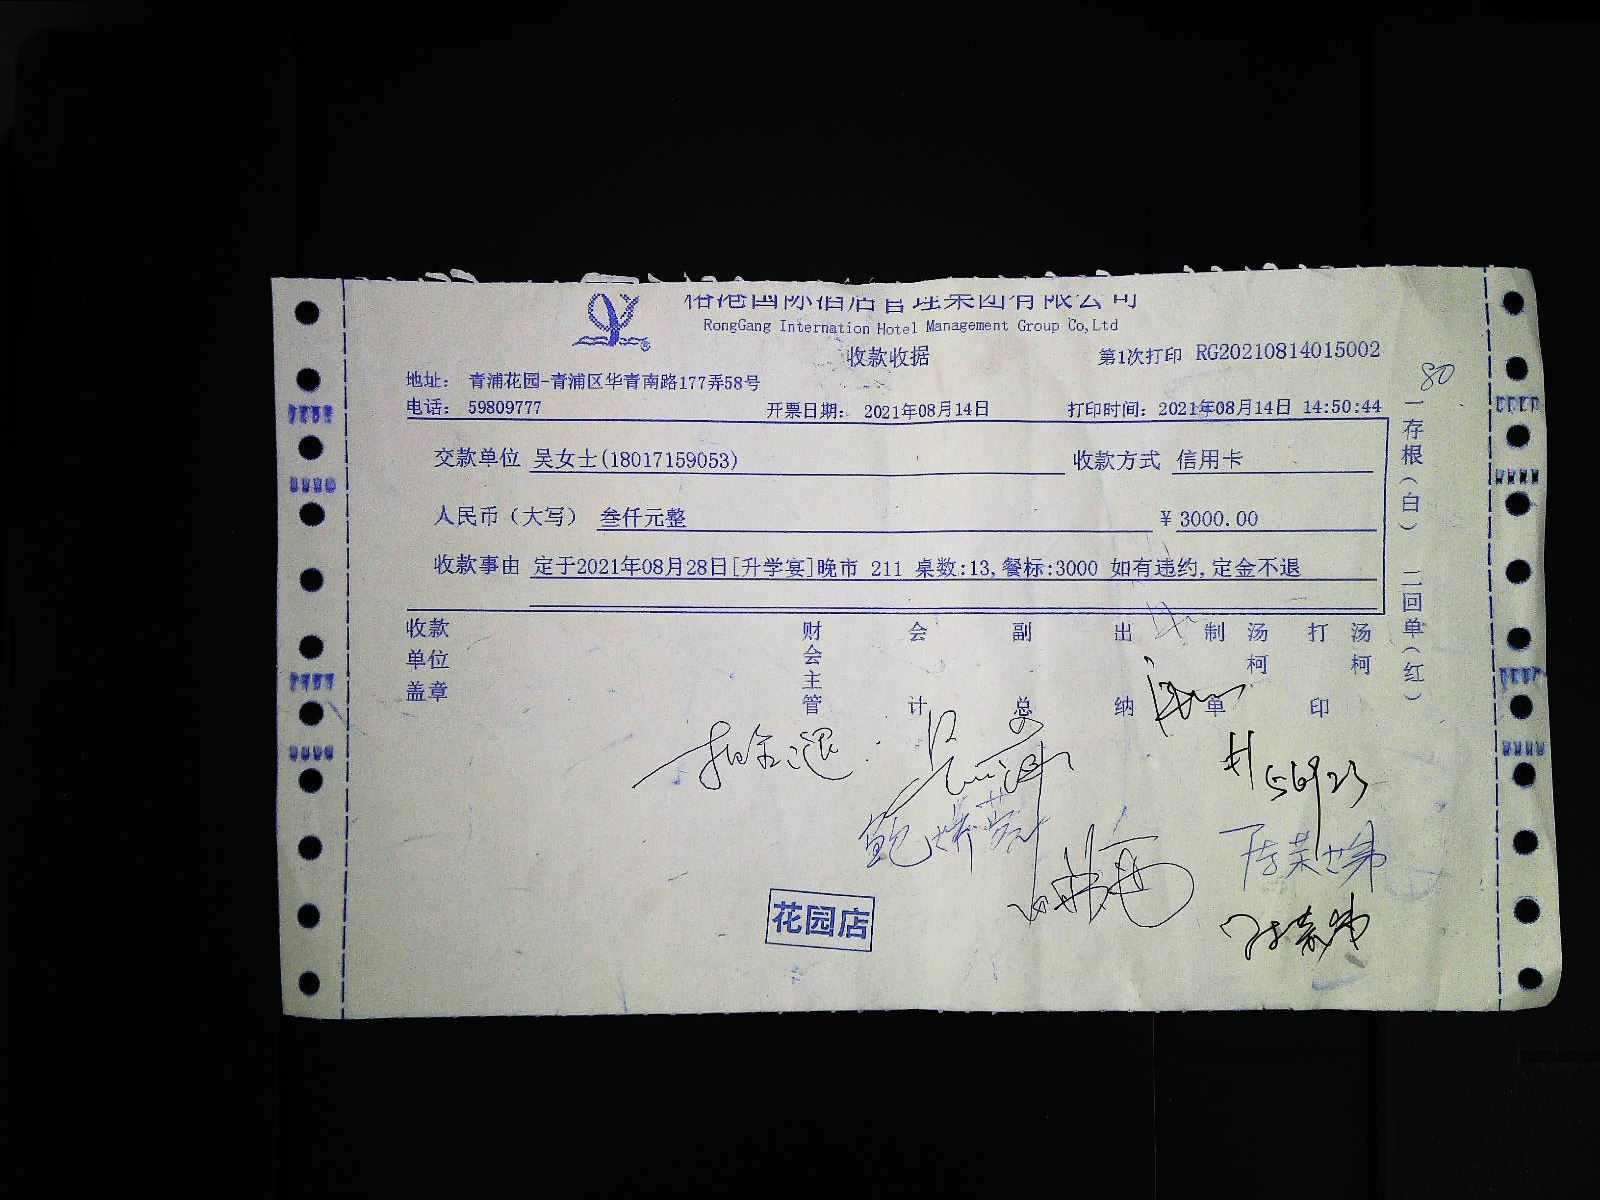 榕港国际酒店管理集团有限公司
RongGang Internation Hotel Management Group Co,Ltd
收款收据
第1次打印 RG20210814015002
80
地址： 青浦花园-青浦区华青南路177弄58号
电话： 59809777 开票日期： 2021年08月14日 打印时间： 2021年08月14日 14:50:44
交款单位 吴女士(18017159053) 收款方式 信用卡
人民币（大写） 叁仟元整 ¥ 3000.00
收款事由 定于2021年08月28日[升学宴]晚市 211 桌数:13,餐标:3000 如有违约,定金不退
一存根（白） 二回单（红）
收款单位盖章 财会主管 会计 副总 出纳 制单 汤柯 打印 汤柯
花园店